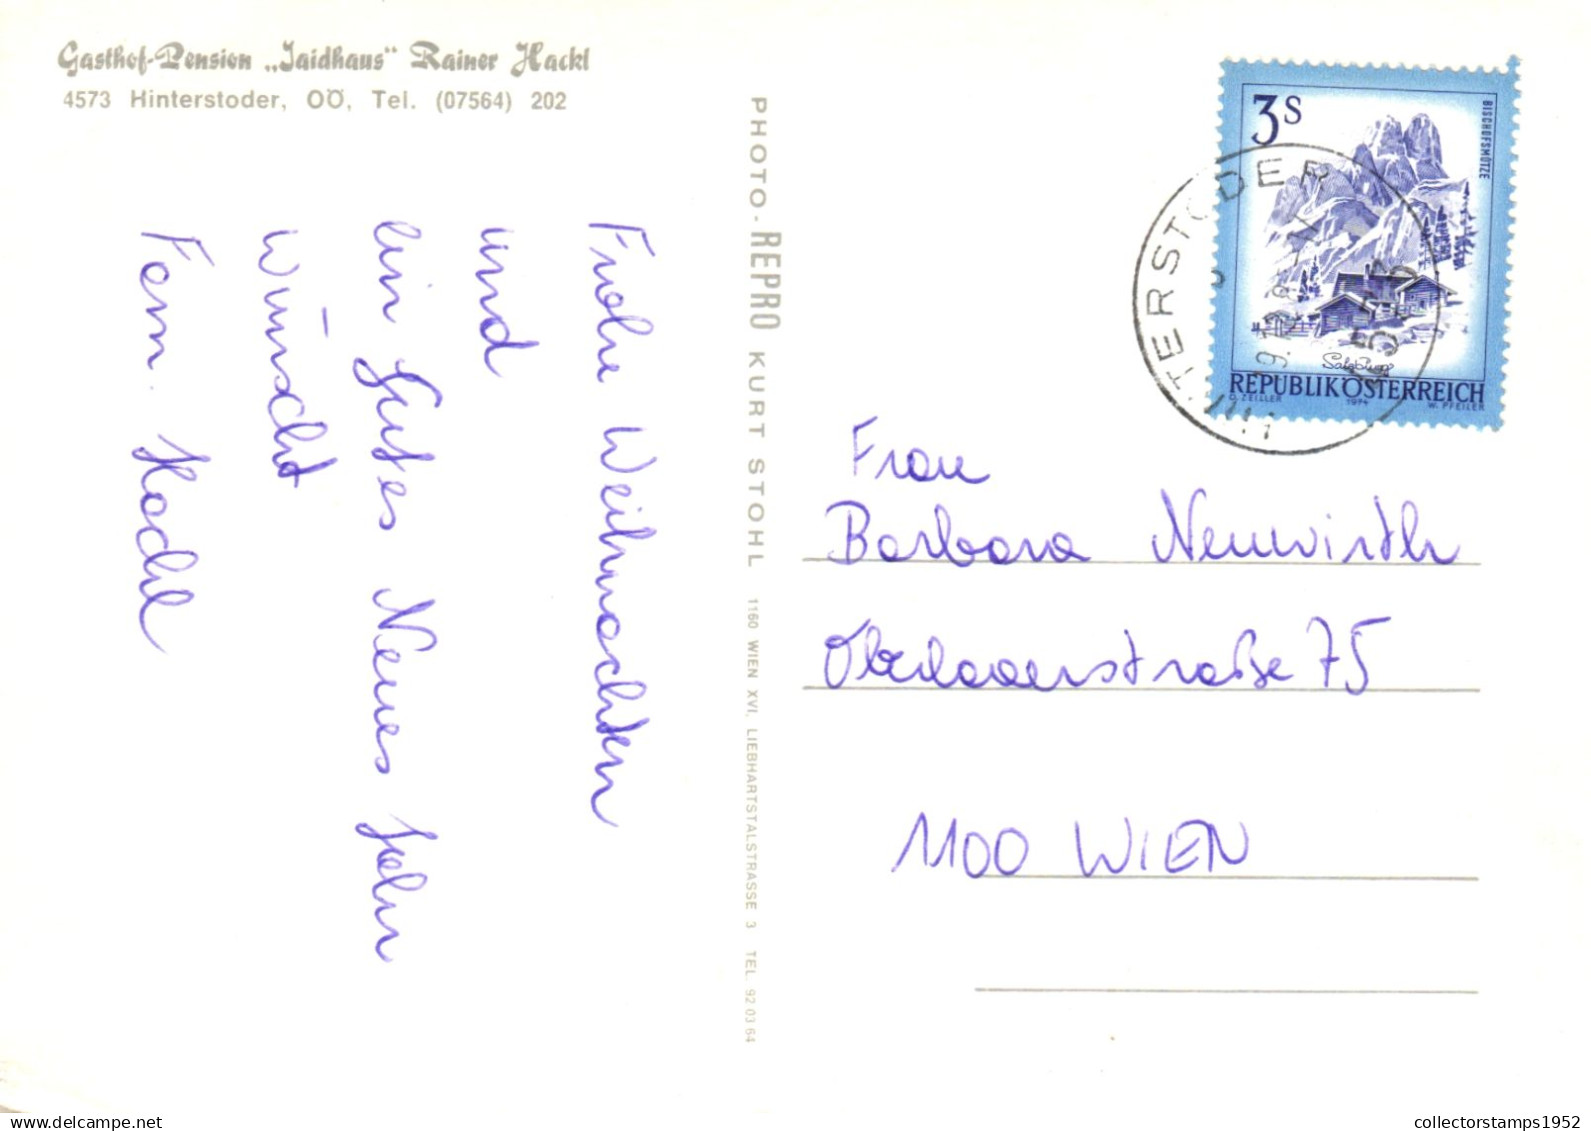 Gasthof-Pension „Jaidhaus" Rainer Hackl
4573 Hinterstoder, OÖ, Tel. (07564) 202
Frohe Weihnachten
und
ein Gutes Neues Jahr
wünscht
Fam. Hackl
PHOTO-REPRO KURT STOHL 1160 WIEN XVI, LIEBHARTSTALSTRASSE 3 TEL. 92 03 64
3S
BISCHOFSMÜTZE
Salzburg
REPUBLIK ÖSTERREICH
O. ZEILLER 1974 W. PFEILER
TERSTODER
Frau
Barbara Neuwirth
Oberlaaerstraße 75
1100 WIEN
collectorstamps1952